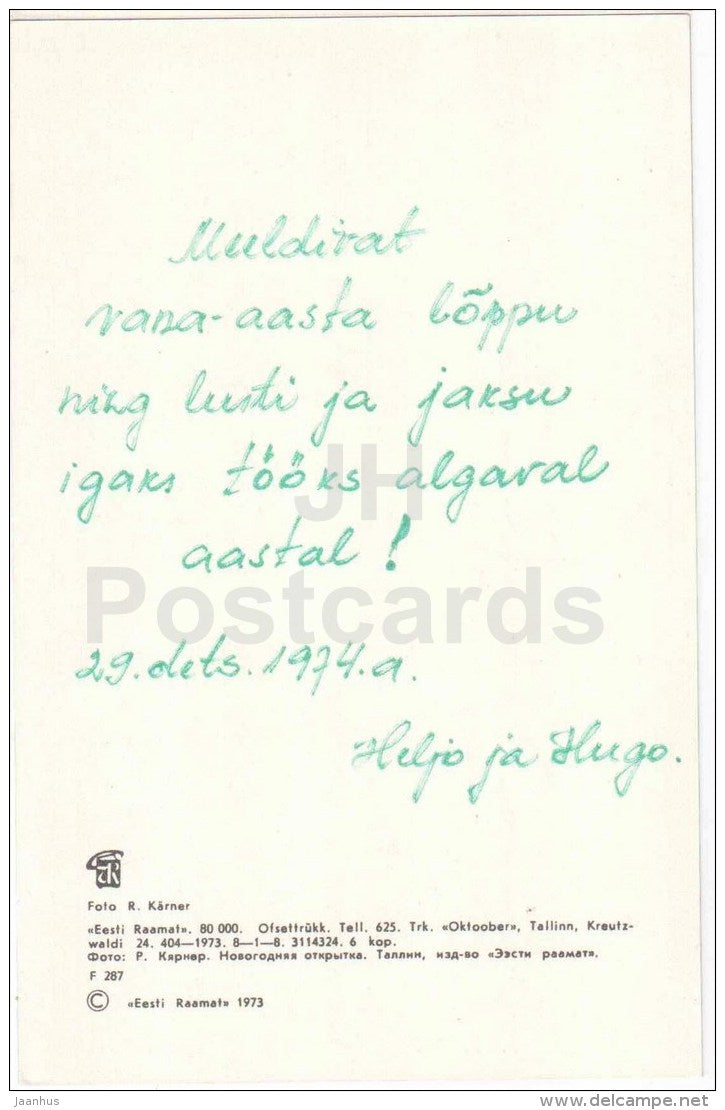 Meeldivat
vana-aasta lõppu
ning lusti ja jaksu
igaks tööks algaval
aastal!
29. dets. 1974.a.
Heljo ja Hugo.
JH
Postcards
Foto R. Kärner
«Eesti Raamat». 80 000. Ofsettrükk. Tell. 625. Trk. «Oktoober», Tallinn, Kreutz-
waldi 24. 404—1973. 8—1—8. 3114324. 6 kop.
Фото: Р. Кярнер. Новогодняя открытка. Таллин, изд-во «Ээсти раамат».
F 287
© «Eesti Raamat» 1973
Jaanhus
www.delcampe.net